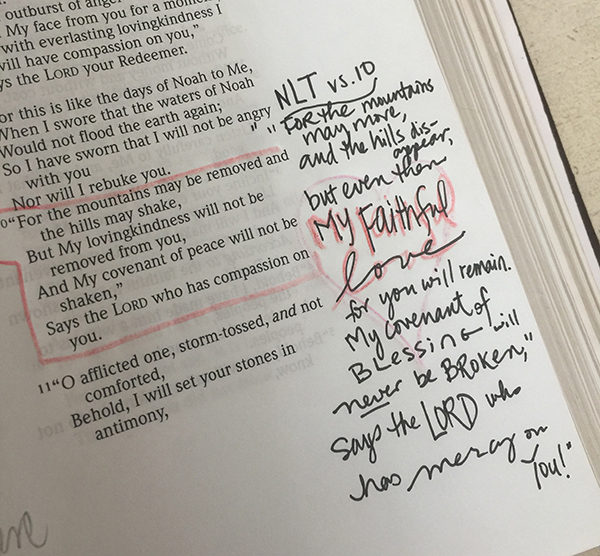 outburst of anger
My face from you for a moment
with everlasting lovingkindness I
will have compassion on you,"
ys the LORD your Redeemer.
or this is like the days of Noah to Me,
When I swore that the waters of Noah
Would not flood the earth again;
So I have sworn that I will not be angry
with you
Nor will I rebuke you.
10 "For the mountains may be removed and
the hills may shake,
But My lovingkindness will not be
removed from you,
And My covenant of peace will not be
shaken,"
Says the LORD who has compassion on
you.
11 "O afflicted one, storm-tossed, and not
comforted,
Behold, I will set your stones in
antimony,
NLT vs. 10
" "For the mountains
may move,
and the hills dis-
appear,
but even then
My Faithful
love
for you will remain.
My covenant of
BLESSING will
never be BROKEN,"
says the LORD who
has mercy on
You!"